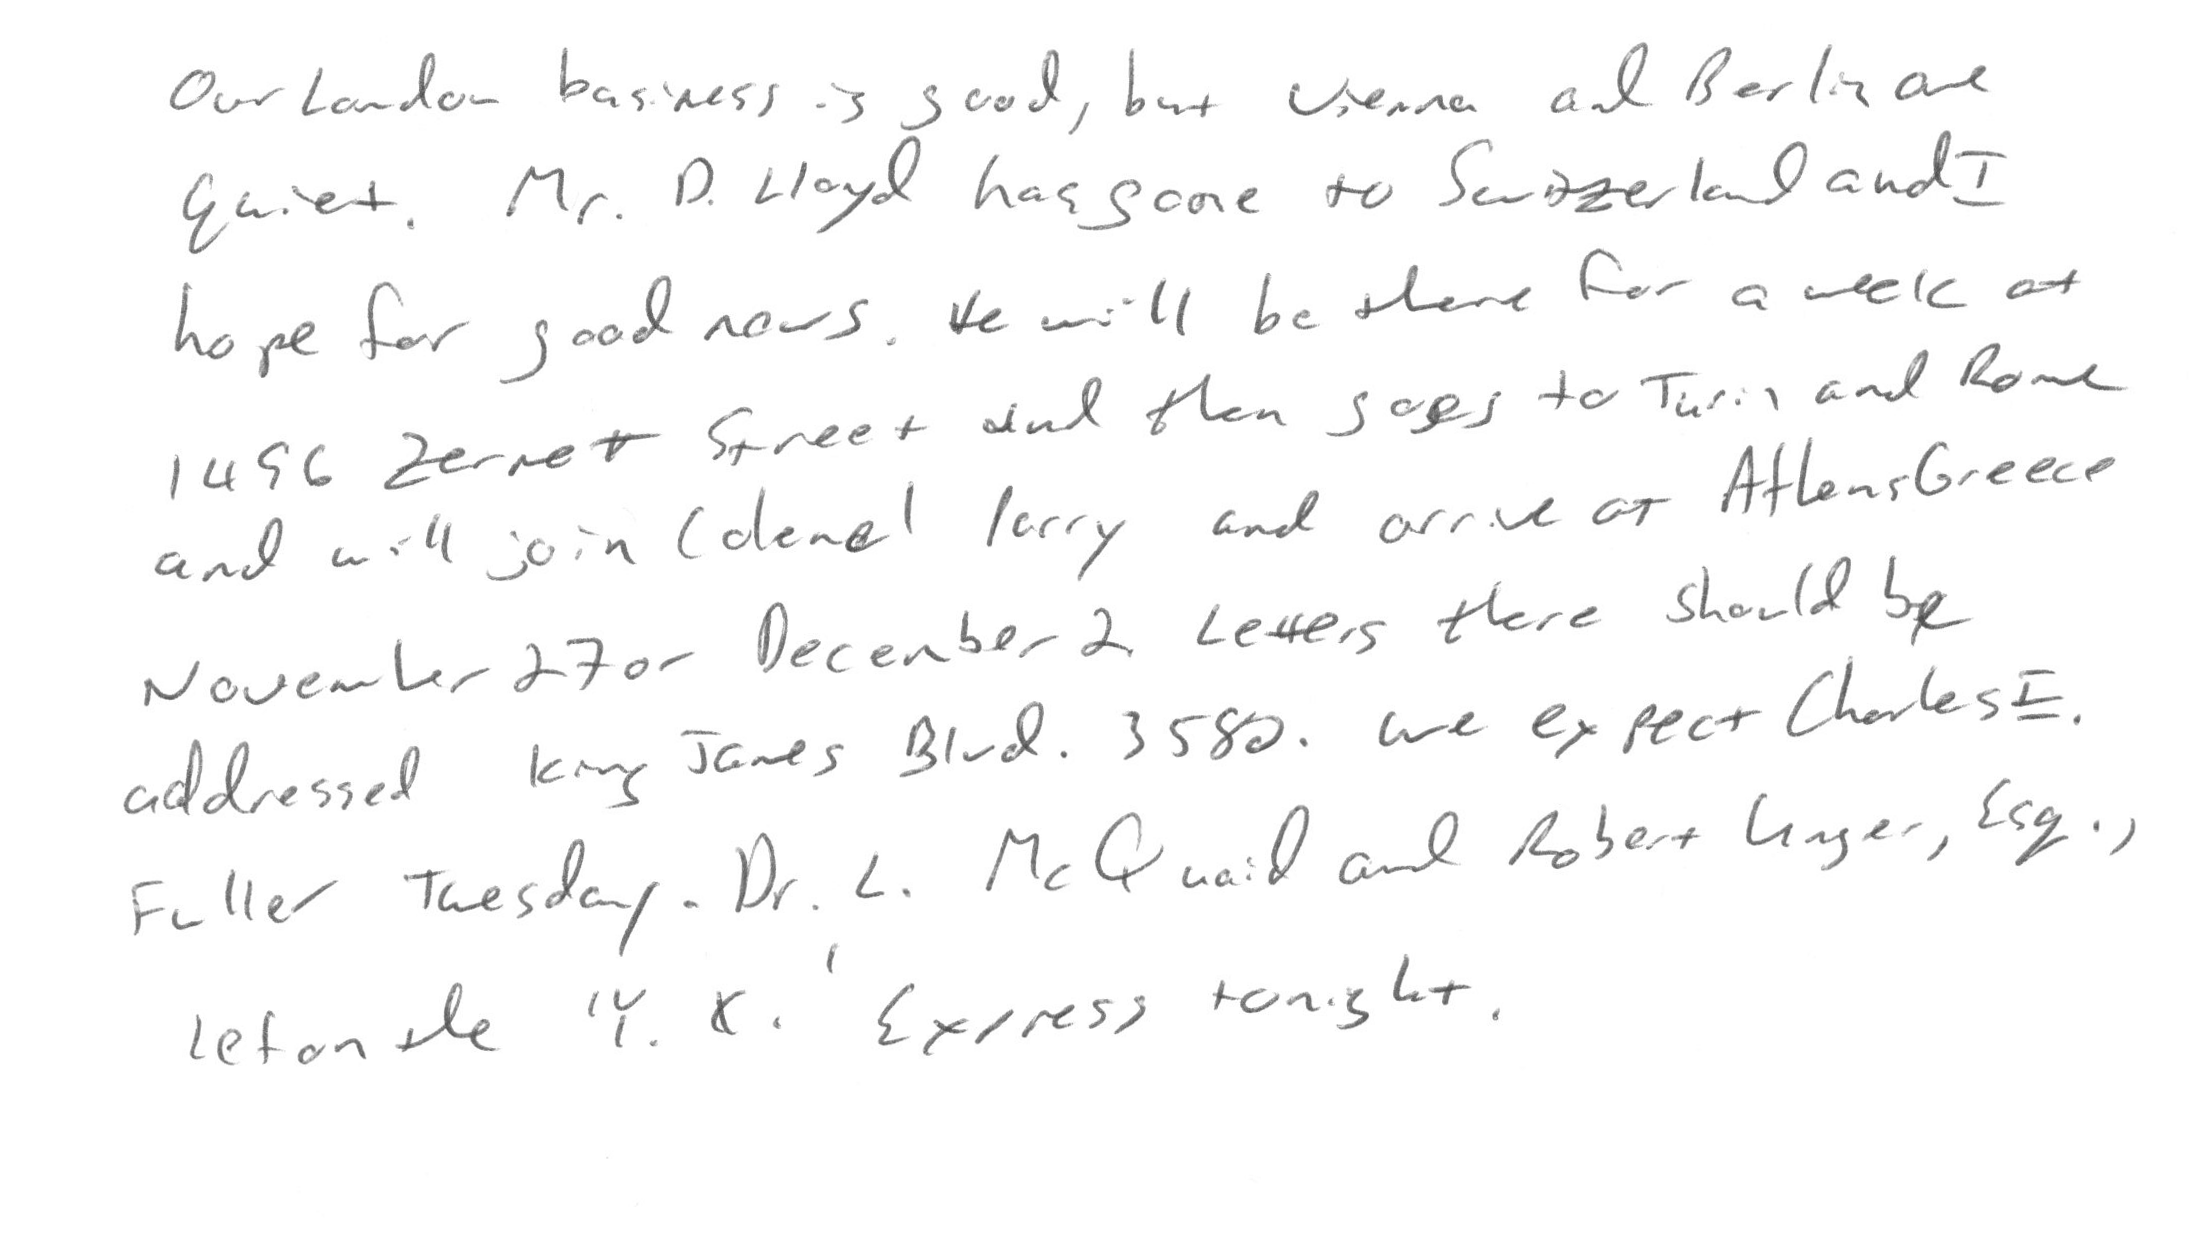 Our London business is good, but Vienna and Berlin are
quiet. Mr. D. Lloyd has gone to Switzerland and I
hope for good news. He will be there for a week at
1496 Zermett Street and then goes to Turin and Rome
and will join Colonel Parry and arrive at Athens Greece
November 27 or December 2. Letters there should be
addressed King James Blvd. 3580. We expect Charles E.
Fuller Tuesday. Dr. L. McQuaid and Robert Unger, Esq.,
left on the "Y. X.' Express tonight.